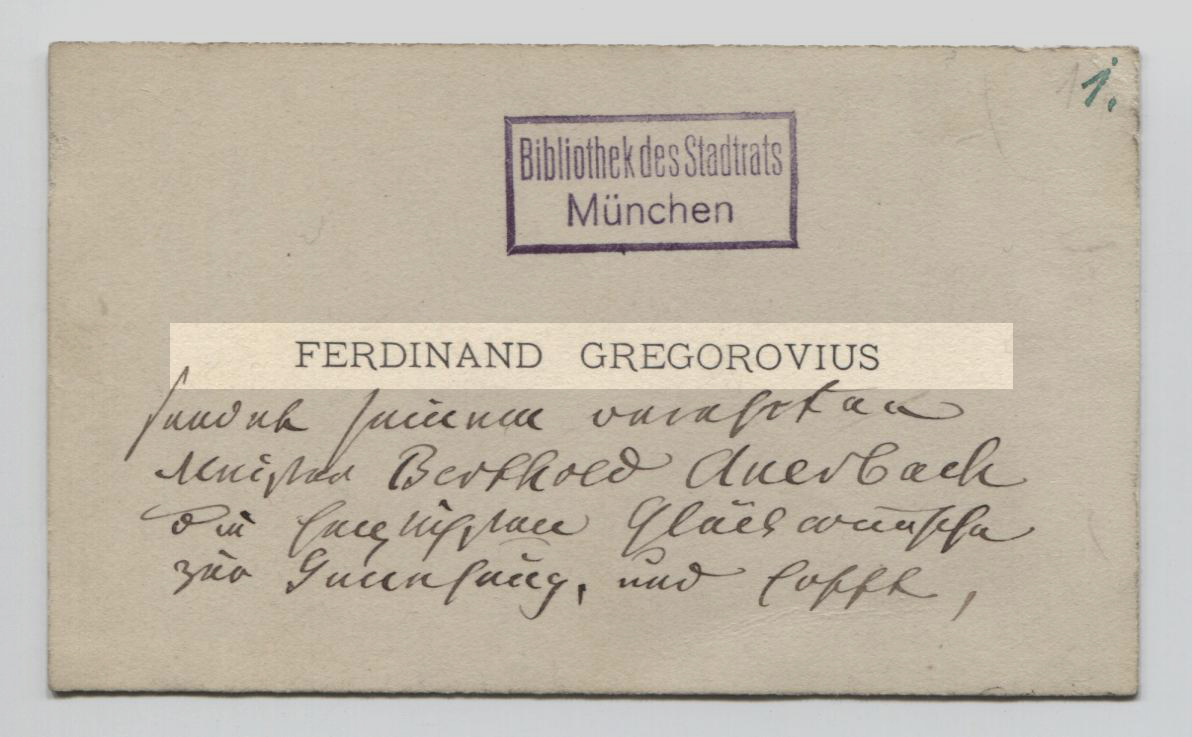 1.
Bibliothek des Stadtrats
München
FERDINAND GREGOROVIUS
sendet seinem verehrten
Meister Berthold Auerbach
die herzlichsten Glückwünsche
zur Genesung, und hofft,